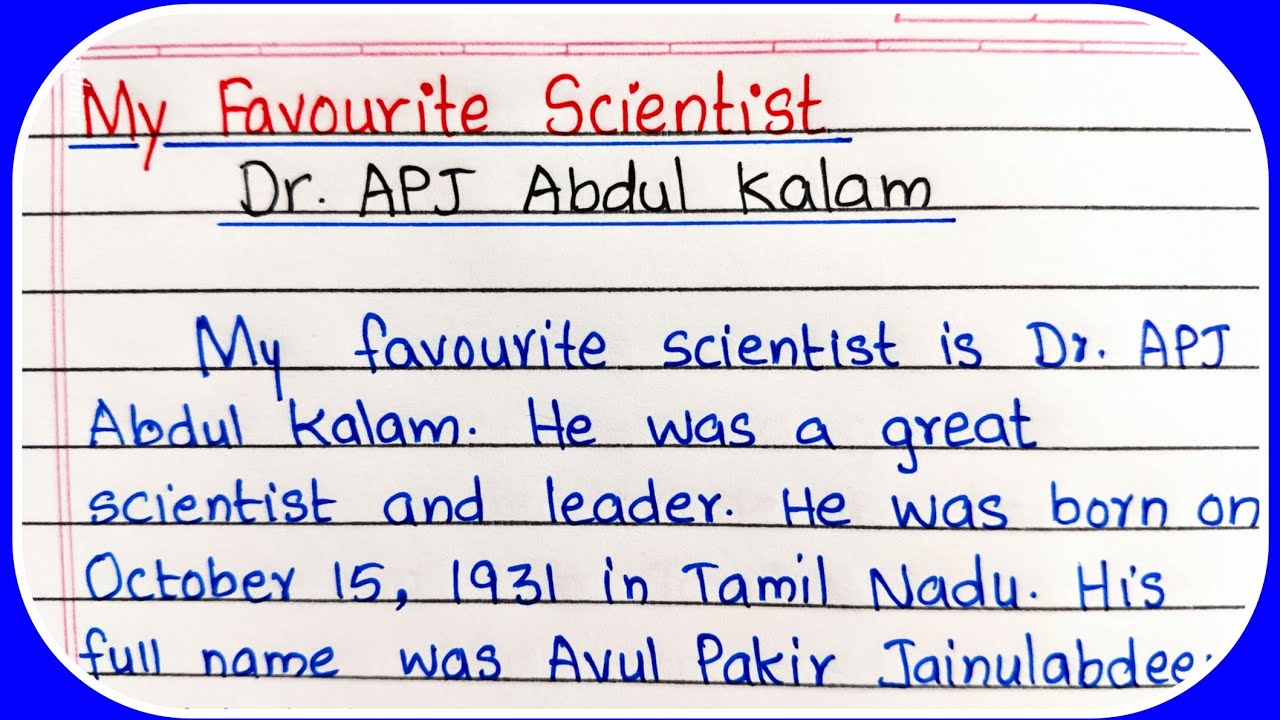 My Favourite Scientist
Dr. APJ Abdul Kalam
My favourite scientist is Dr. APJ
Abdul Kalam. He was a great
scientist and leader. He was born on
October 15, 1931 in Tamil Nadu. His
full name was Avul Pakir Jainulabdee